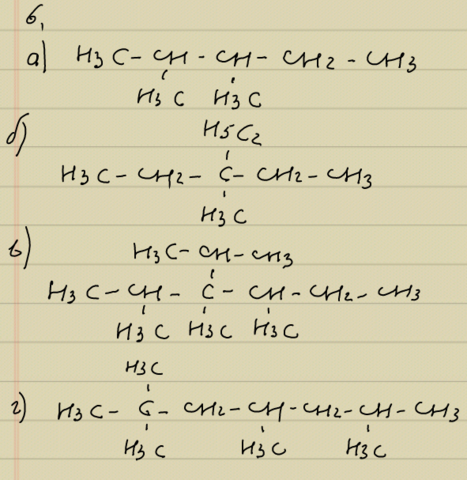 6.
а) H3C - CH - CH - CH2 - CH3
H3C H3C
б) H5C2
H3C - CH2 - C - CH2 - CH3
H3C
в) H3C - CH - CH3
H3C - CH - C - CH - CH2 - CH3
H3C H3C H3C
H3C
г) H3C - C - CH2 - CH - CH2 - CH - CH3
H3C H3C H3C